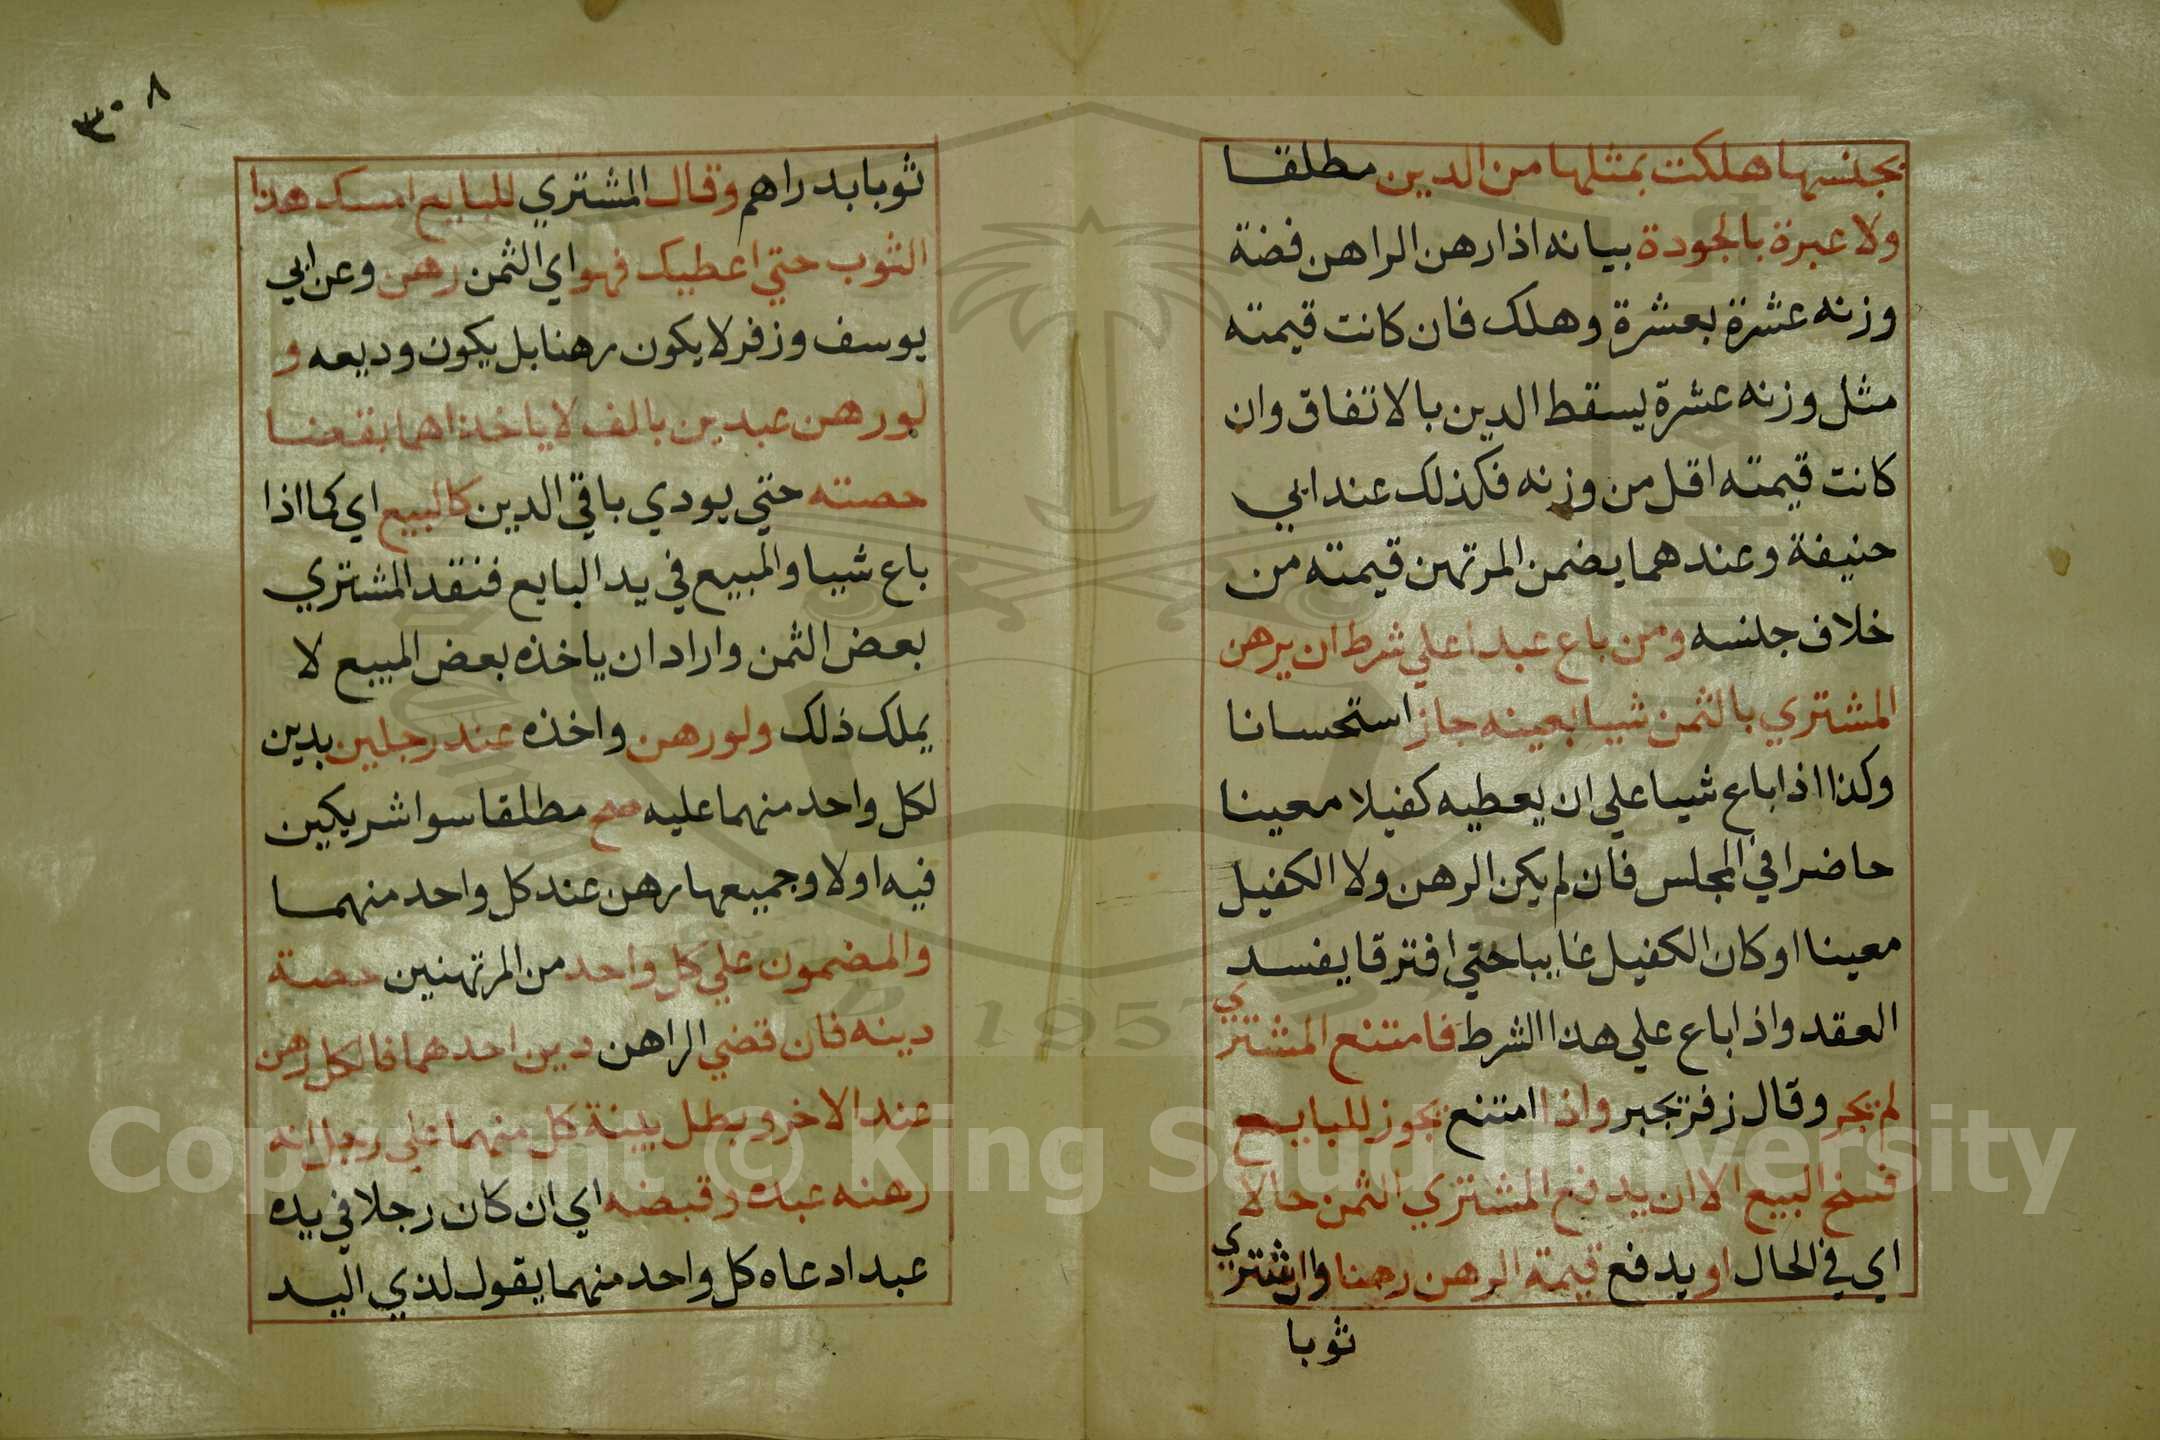 بجنسها هلكت بمثلها من الدين مطلقا
ولا عبرة بالجودة بيانه اذا رهن الراهن فضة
وزنه عشرة بعشرة وهلك فان كانت قيمته
مثل وزنه عشرة يسقط الدين بالاتفاق وان
كانت قيمته اقل من وزنه فكذلك عند ابي
حنيفة وعندهما يضمن المرتهن قيمته من
خلاف جلنسه ومن باع عبدا علي شرط ان يرهن
المشتري بالثمن شييا بعينه جاز استحسانا
وكذا اذا باع شييا علي ان يعطيه كفيلا معينا
حاضرا في المجلس فان لم يكن الرهن ولا الكفيل
معينا او كان الكفيل غايبا حتي افترقا يفسد
العقد واذا باع علي هذا الشرط فامتنع المشتري
لم يجبر وقال زفر يجبر واذا امتنع يجوز للبايع
فسخ البيع الا ان يدفع المشتري الثمن حالا
اي في الحال او يدفع قيمة الرهن رهنا وان اشتري
ثوبا
٣٠٨
ثوبا بدراهم وقال المشتري للبايع امسك هذا
الثوب حتي اعطيك فهو اي الثمن رهن وعن ابي
يوسف وزفر لا يكون رهنا بل يكون وديعه و
لو رهن عبدين بالف لا ياخذ احدهما بقضا
حصته حتي يودي باقي الدين كالبيع اي كما اذا
باع شييا والمبيع في يد البايع فنقد المشتري
بعض الثمن واراد ان ياخذه بعض المبيع لا
يملك ذلك ولو رهن واخذه عند رجلين بدين
لكل واحد منهما عليه صح مطلقا سوا شريكين
فيه او لا وجميعها رهن عند كل واحد منهما
والمضمون علي كل واحد من المرتهنين حصة
دينه فان قضي الراهن دين احدهما فالكل رهن
عند الاخر وبطل بينة كل منهما علي رجل انه
رهنه عبده وقبضه اي ان كان رجلا في يده
عبد ادعاه كل واحد منهما يقول لذي اليد
Copyright © King Saud University
1957